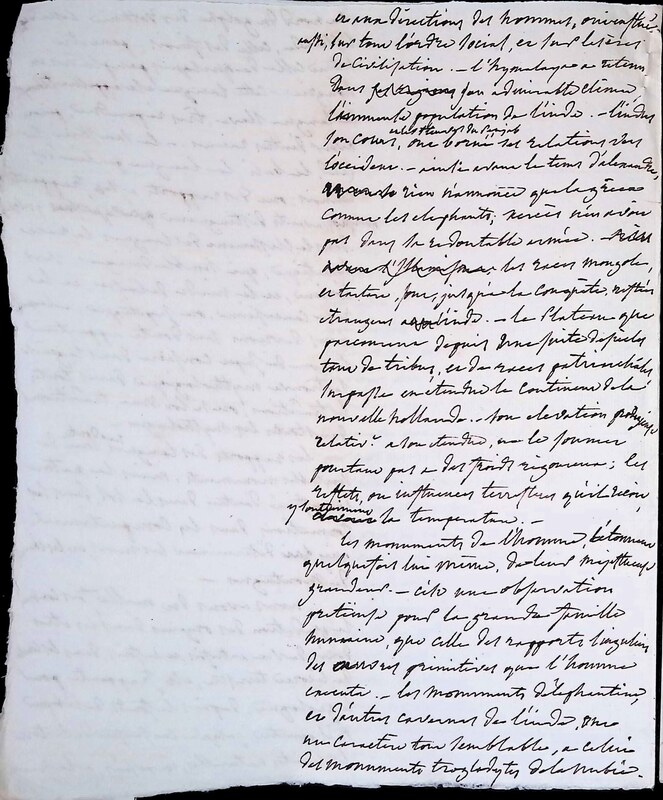 et aux directions des hommes, ont influé
aussi, sur tout l'ordre social, et sur les ères
de civilisation. – l'hymalaya a retenu
dans son admirable climat
l'immense population de l'inde. – l'indus
et les fleuves du Penjab
son cours, ont borné ses relations vers
l'occident. – avant le tems d'alexandre,
rien n'annonce que la grèce
connut les elephants; xercès n'en avoit
pas dans sa redoutable armée. –
les races mongole,
et tartare, sont, jusqu'à la conquête, restées
etrangeres à l'inde. – le Plateau que
parcourent depuis une suite de siecles
tant de tribus, et de races patriarchales
surpasse en étendue le continent de la
nouvelle hollande. – son elevation prodigieuse
relativt. a son etendue, ne le soumet
pourtant pas a des froids rigoureux; les
reflets, ou influences terrestres qu'il reçoit,
y soutiennent
la temperature. –
les monuments de l'homme, étonnent
quelquefois lui même, de leur majestueuse
grandeur. – c'est une observation
précieuse pour la grande famille
humaine, que celle des rapports singuliers
des œuvres primitives que l'homme
execute. – les monuments d'éléphantine,
et d'autres cavernes de l'inde, ont
un caractère tout semblable, a celui
des monuments troglodytes de la nubie.